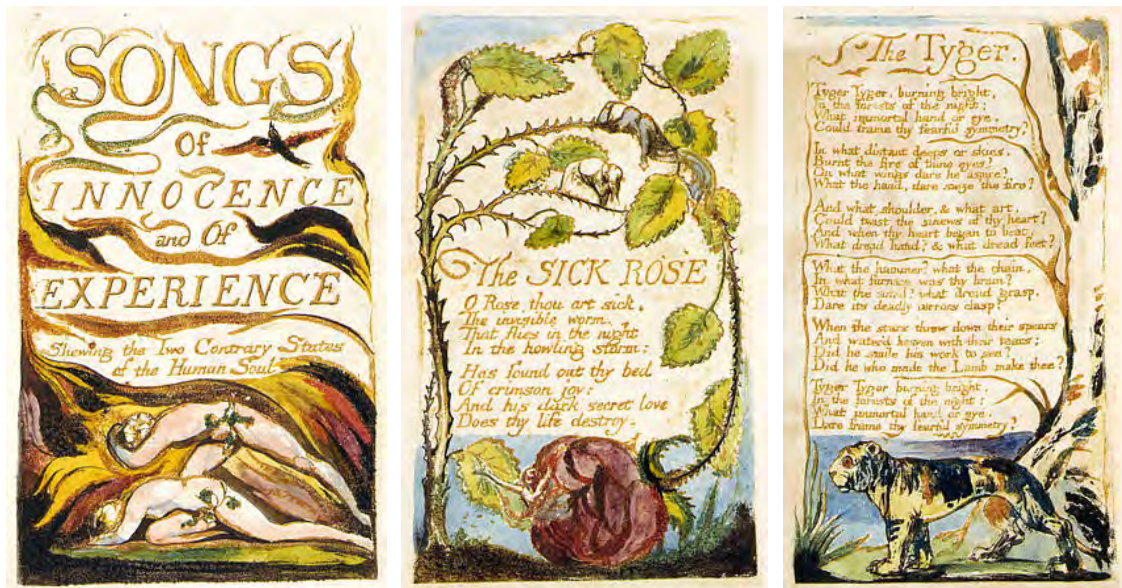 SONGS
Of
INNOCENCE
and Of
EXPERIENCE
Shewing the Two Contrary States
of the Human Soul
The SICK ROSE
O Rose thou art sick.
The invisible worm.
That flies in the night
In the howling storm:
Has found out thy bed
Of crimson joy:
And his dark secret love
Does thy life destroy.
The Tyger.
Tyger Tyger, burning bright,
In the forests of the night:
What immortal hand or eye,
Could frame thy fearful symmetry?
In what distant deeps or skies,
Burnt the fire of thine eyes?
On what wings dare he aspire?
What the hand, dare seize the fire?
And what shoulder, & what art,
Could twist the sinews of thy heart?
And when thy heart began to beat,
What dread hand? & what dread feet?
What the hammer? what the chain,
In what furnace was thy brain?
What the anvil? what dread grasp,
Dare its deadly terrors clasp!
When the stars threw down their spears
And water'd heaven with their tears:
Did he smile his work to see?
Did he who made the Lamb make thee?
Tyger Tyger burning bright,
In the forests of the night:
What immortal hand or eye,
Dare frame thy fearful symmetry?